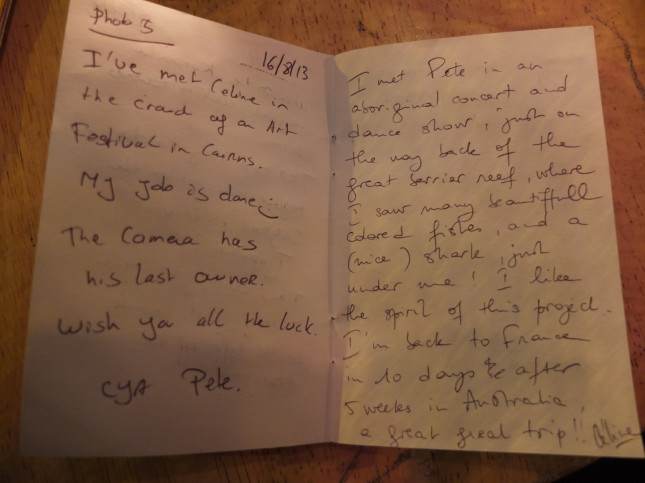 Photo 5
16/8/13
I've met Celine in
the crowd of an Art
Festival in Cairns.
My job is done;
The Camera has
his last owner.
Wish you all the luck.
CYA Pete.
I met Pete in an
aboriginal concert and
dance show, just on
the way back of the
great barrier reef, where
I saw many beautifull
colored fishes, and a
(nice) shark, just
under me! I like
the spirit of this project.
I'm back to France
in 10 days after
5 weeks in Australia,
a great great trip!! Céline